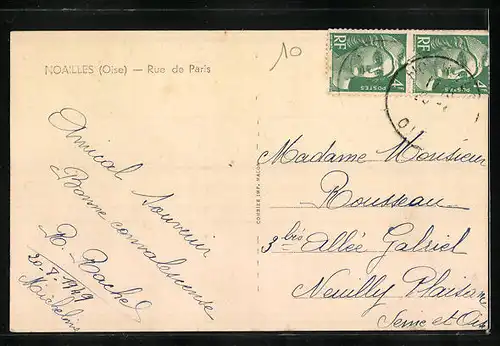 NOAILLES (Oise) — Rue de Paris
10
RF
4F
POSTES
RF
4F
POSTES
OISE
Amical Souvenir
Bonne convalescence
R. Rachel
20-8-1949
COMBIER IMP. MACON
Madame Monsieur
Rousseau
3 bis Allée Gabriel
Neuilly Plaisance
Seine et Oise